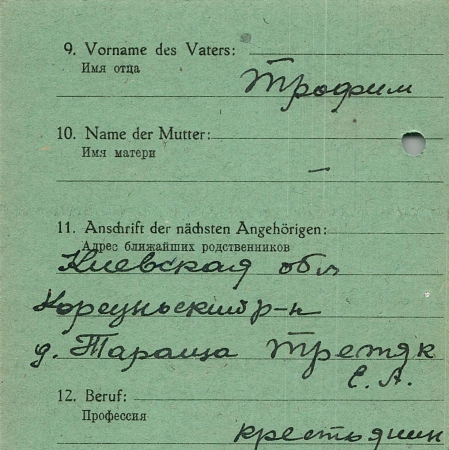 9. Vorname des Vaters:
Имя отца
Трофим
10. Name der Mutter:
Имя матери
—
11. Anschrift der nächsten Angehörigen:
Адрес ближайших родственников
Киевская обл
Корсуньский р-н
д. Тараща Третяк
С. А.
12. Beruf:
Профессия
крестьянин